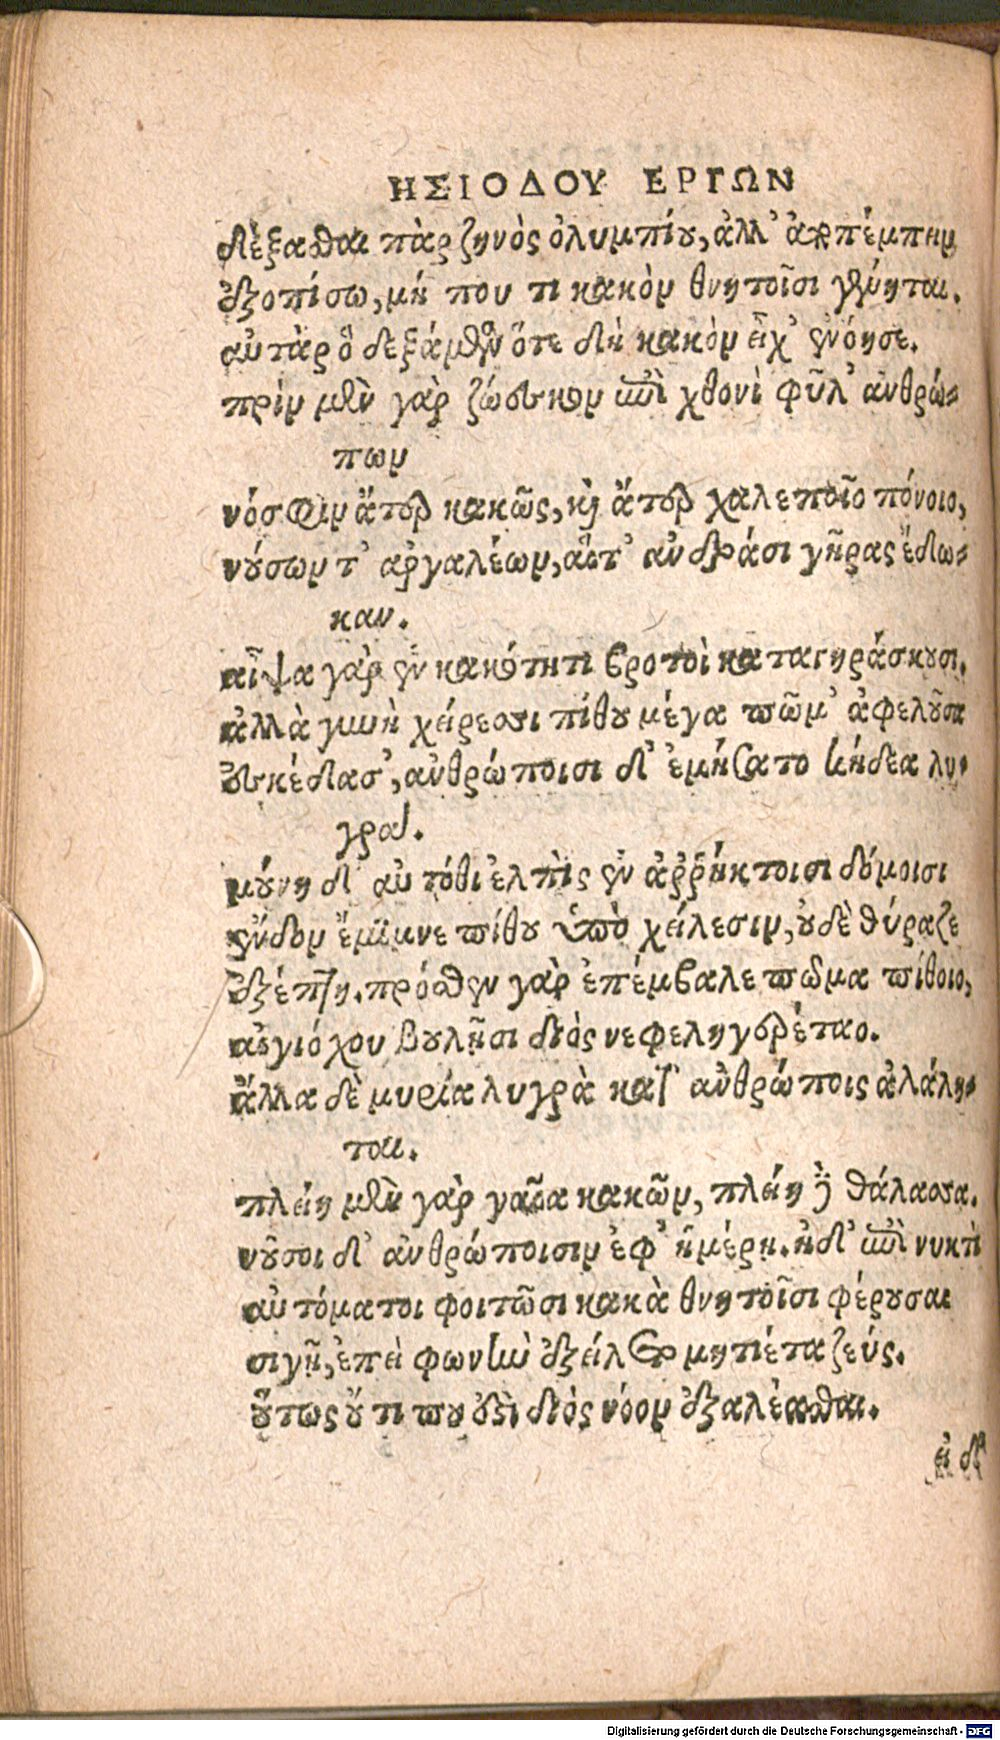 ΗΣΙΟΔΟΥ ΕΡΓΩΝ
δέξασθαι πὰρ ζηνὸς ὀλυμπίου, ἀλλ' ἀποπέμπειν
ἐξοπίσω, μή που τι κακὸν θνητοῖσι γένηται.
αὐτὰρ ὁ δεξάμενος ὅτε δὴ κακὸν εἶχ' ἐνόησε.
πρὶν μὲν γὰρ ζώεσκον ἐπὶ χθονὶ φῦλ' ἀνθρώ-
πων
νόσφιν ἄτερ κακῶν, καὶ ἄτερ χαλεποῖο πόνοιο,
νούσων τ' ἀργαλέων, αἵτ' ἀνδράσι γῆρας ἔδω-
καν.
αἶψα γὰρ ἐν κακότητι βροτοὶ καταγηράσκουσι.
ἀλλὰ γυνὴ χείρεσσι πίθου μέγα πῶμ' ἀφελοῦσα
ἐσκέδασ', ἀνθρώποισι δ' ἐμήσατο κήδεα λυ-
γρά.
μούνη δ' αὐτόθι ἐλπὶς ἐν ἀῤῥήκτοισι δόμοισι
ἔνδον ἔμιμνε πίθου ὑπὸ χείλεσιν, οὐδὲ θύραζε
ἐξέπτη. πρόσθεν γὰρ ἐπέμβαλε πῶμα πίθοιο,
αἰγιόχου βουλῇσι διὸς νεφεληγερέταο.
ἄλλα δὲ μυρία λυγρὰ κατ' ἀνθρώποις ἀλάλη-
ται.
πλείη μὲν γὰρ γαῖα κακῶν, πλείη δὲ θάλασσα.
νοῦσοι δ' ἀνθρώποισιν ἐφ' ἡμέρῃ. ἠδ' ἐπὶ νυκτὶ
αὐτόματοι φοιτῶσι κακὰ θνητοῖσι φέρουσαι
σιγῇ, ἐπεὶ φωνὴν ἐξείλετο μητιέτα ζεύς.
οὕτως οὔ τι που ἐστὶ διὸς νόον ἐξαλέασθαι.
εἰ δ'
Digitalisierung gefördert durch die Deutsche Forschungsgemeinschaft - DFG